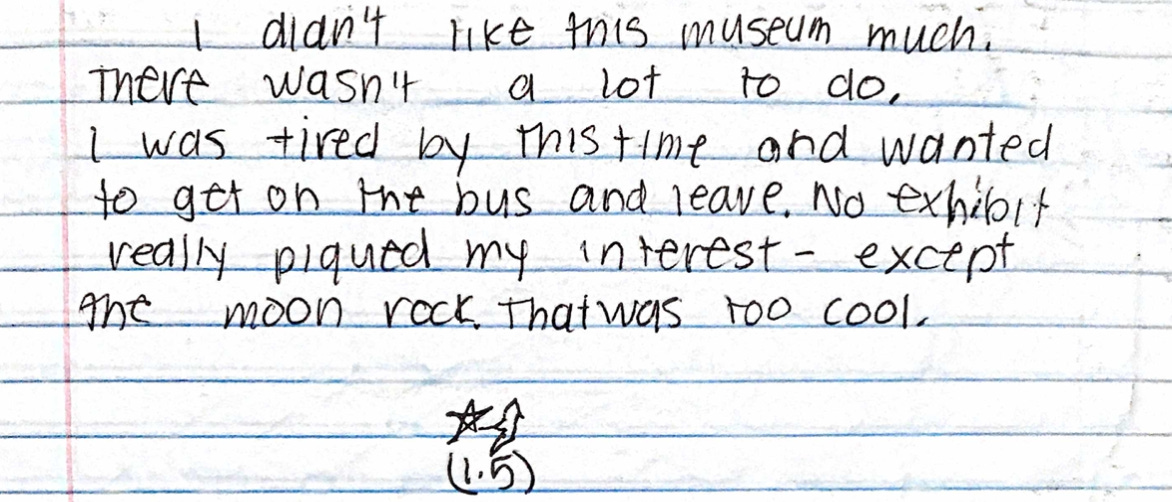 I didn't like this museum much.
There wasn't a lot to do.
I was tired by this time and wanted
to get on the bus and leave. No exhibit
really piqued my interest - except
the moon rock. That was too cool.
(1.5)